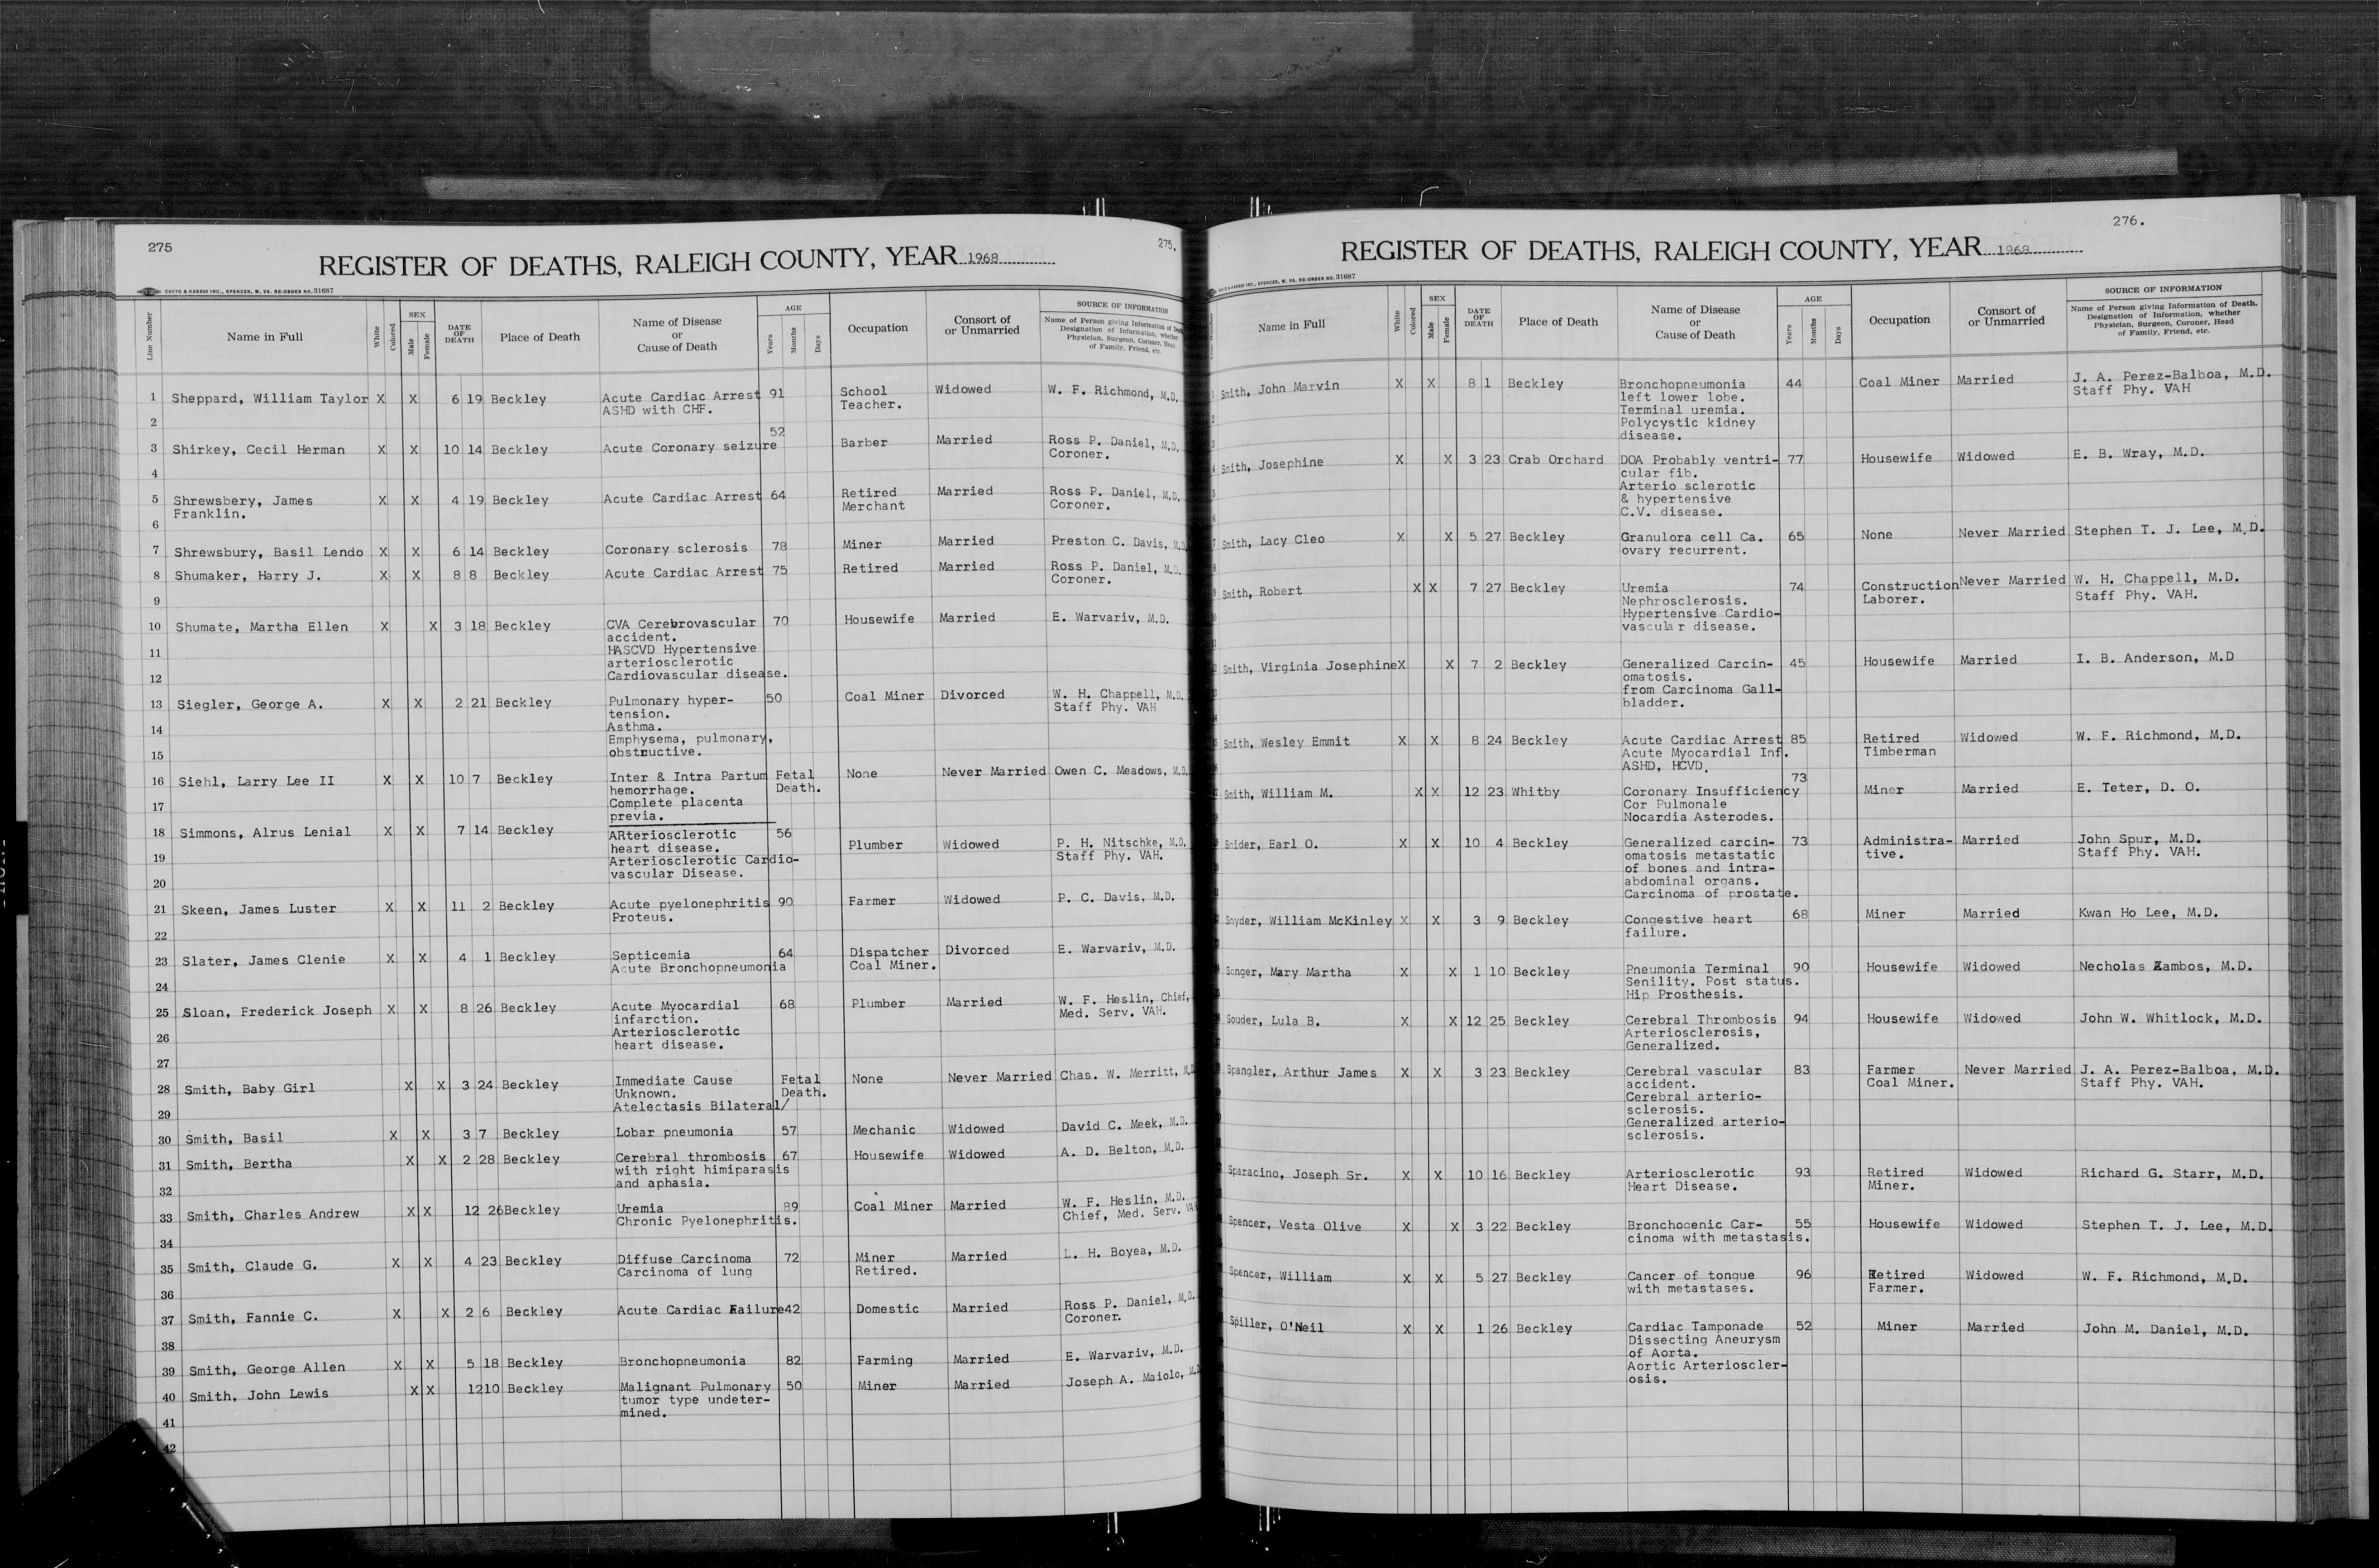 275
275.
REGISTER OF DEATHS, RALEIGH COUNTY, YEAR 1968
CASTO & HARRIS INC., SPENCER, W. VA. RE-ORDER NO. 31687
Line Number | Name in Full | White | Colored | SEX Male | Female | DATE OF DEATH | Place of Death | Name of Disease or Cause of Death | AGE Years | Months | Days | Occupation | Consort of or Unmarried | SOURCE OF INFORMATION Name of Person giving Information of Death Designation of Information, whether Physician, Surgeon, Coroner, Head of Family, Friend, etc.
1 Sheppard, William Taylor X X 6 19 Beckley Acute Cardiac Arrest 91 School Widowed W. F. Richmond, M.D.
ASHD with CHF. Teacher.
2
52
3 Shirkey, Cecil Herman X X 10 14 Beckley Acute Coronary seizure Barber Married Ross P. Daniel, M.D.
Coroner.
4
5 Shrewsbery, James X X 4 19 Beckley Acute Cardiac Arrest 64 Retired Married Ross P. Daniel, M.D.
Franklin. Merchant Coroner.
6
7 Shrewsbury, Basil Lendo X X 6 14 Beckley Coronary sclerosis 78 Miner Married Preston C. Davis, M.D.
8 Shumaker, Harry J. X X 8 8 Beckley Acute Cardiac Arrest 75 Retired Married Ross P. Daniel, M.D.
Coroner.
9
10 Shumate, Martha Ellen X X 3 18 Beckley CVA Cerebrovascular 70 Housewife Married E. Warvariv, M.D.
accident.
11 HASCVD Hypertensive
arteriosclerotic
12 Cardiovascular disease.
13 Siegler, George A. X X 2 21 Beckley Pulmonary hyper- 50 Coal Miner Divorced W. H. Chappell, M.D.
tension. Staff Phy. VAH
14 Asthma.
Emphysema, pulmonary,
15 obstructive.
16 Siehl, Larry Lee II X X 10 7 Beckley Inter & Intra Partum Fetal None Never Married Owen C. Meadows, M.D.
hemorrhage. Death.
17 Complete placenta
previa.
18 Simmons, Alrus Lenial X X 7 14 Beckley ARteriosclerotic 56 Plumber Widowed P. H. Nitschke, M.D.
heart disease. Staff Phy. VAH.
19 Arteriosclerotic Cardio-
vascular Disease.
20
21 Skeen, James Luster X X 11 2 Beckley Acute pyelonephritis 90 Farmer Widowed P. C. Davis, M.D.
Proteus.
22
23 Slater, James Clenie X X 4 1 Beckley Septicemia 64 Dispatcher Divorced E. Warvariv, M.D.
Acute Bronchopneumonia Coal Miner.
24
25 Sloan, Frederick Joseph X X 8 26 Beckley Acute Myocardial 68 Plumber Married W. F. Heslin, Chief,
infarction. Med. Serv. VAH.
26 Arteriosclerotic
heart disease.
27
28 Smith, Baby Girl X X 3 24 Beckley Immediate Cause Fetal None Never Married Chas. W. Merritt, M.D.
Unknown. Death.
29 Atelectasis Bilateral/
30 Smith, Basil X X 3 7 Beckley Lobar pneumonia 57 Mechanic Widowed David C. Meek, M.D.
31 Smith, Bertha X X 2 28 Beckley Cerebral thrombosis 67 Housewife Widowed A. D. Belton, M.D.
with right himiparasis
32 and aphasia.
33 Smith, Charles Andrew X X 12 26 Beckley Uremia 89 Coal Miner Married W. F. Heslin, M.D.
Chronic Pyelonephritis. Chief, Med. Serv. VAH
34
35 Smith, Claude G. X X 4 23 Beckley Diffuse Carcinoma 72 Miner Married L. H. Boyea, M.D.
Carcinoma of lung Retired.
36
37 Smith, Fannie C. X X 2 6 Beckley Acute Cardiac Failure 42 Domestic Married Ross P. Daniel, M.D.
Coroner.
38
39 Smith, George Allen X X 5 18 Beckley Bronchopneumonia 82 Farming Married E. Warvariv, M.D.
40 Smith, John Lewis X X 12 10 Beckley Malignant Pulmonary 50 Miner Married Joseph A. Maiolo, M.D.
tumor type undeter-
41 mined.
42
276.
REGISTER OF DEATHS, RALEIGH COUNTY, YEAR 1968
CASTO & HARRIS INC., SPENCER, W. VA. RE-ORDER NO. 31687
Name in Full | White | Colored | SEX Male | Female | DATE OF DEATH | Place of Death | Name of Disease or Cause of Death | AGE Years | Months | Days | Occupation | Consort of or Unmarried | SOURCE OF INFORMATION Name of Person giving Information of Death, Designation of Information, whether Physician, Surgeon, Coroner, Head of Family, Friend, etc.
Smith, John Marvin X X 8 1 Beckley Bronchopneumonia 44 Coal Miner Married J. A. Perez-Balboa, M.D.
left lower lobe. Staff Phy. VAH
Terminal uremia.
Polycystic kidney
disease.
Smith, Josephine X X 3 23 Crab Orchard DOA Probably ventri- 77 Housewife Widowed E. B. Wray, M.D.
cular fib.
Arterio sclerotic
& hypertensive
C.V. disease.
Smith, Lacy Cleo X X 5 27 Beckley Granulora cell Ca. 65 None Never Married Stephen T. J. Lee, M.D.
ovary recurrent.
Smith, Robert X X 7 27 Beckley Uremia 74 Construction Never Married W. H. Chappell, M.D.
Nephrosclerosis. Laborer. Staff Phy. VAH.
Hypertensive Cardio-
vascular disease.
Smith, Virginia Josephine X X 7 2 Beckley Generalized Carcin- 45 Housewife Married I. B. Anderson, M.D
omatosis.
from Carcinoma Gall-
bladder.
Smith, Wesley Emmit X X 8 24 Beckley Acute Cardiac Arrest 85 Retired Widowed W. F. Richmond, M.D.
Acute Myocardial Inf. Timberman
ASHD, HCVD.
73
Smith, William M. X X 12 23 Whitby Coronary Insufficiency Miner Married E. Teter, D. O.
Cor Pulmonale
Nocardia Asterodes.
Snider, Earl O. X X 10 4 Beckley Generalized carcin- 73 Administra- Married John Spur, M.D.
omatosis metastatic tive. Staff Phy. VAH.
of bones and intra-
abdominal organs.
Carcinoma of prostate.
Snyder, William McKinley X X 3 9 Beckley Congestive heart 68 Miner Married Kwan Ho Lee, M.D.
failure.
Songer, Mary Martha X X 1 10 Beckley Pneumonia Terminal 90 Housewife Widowed Necholas Zambos, M.D.
Senility. Post status.
Hip Prosthesis.
Souder, Lula B. X X 12 25 Beckley Cerebral Thrombosis 94 Housewife Widowed John W. Whitlock, M.D.
Arteriosclerosis,
Generalized.
Spangler, Arthur James X X 3 23 Beckley Cerebral vascular 83 Farmer Never Married J. A. Perez-Balboa, M.D.
accident. Coal Miner. Staff Phy. VAH.
Cerebral arterio-
sclerosis.
Generalized arterio-
sclerosis.
Sparacino, Joseph Sr. X X 10 16 Beckley Arteriosclerotic 93 Retired Widowed Richard G. Starr, M.D.
Heart Disease. Miner.
Spencer, Vesta Olive X X 3 22 Beckley Bronchogenic Car- 55 Housewife Widowed Stephen T. J. Lee, M.D.
cinoma with metastasis.
Spencer, William X X 5 27 Beckley Cancer of tongue 96 Retired Widowed W. F. Richmond, M.D.
with metastases. Farmer.
Spiller, O'Neil X X 1 26 Beckley Cardiac Tamponade 52 Miner Married John M. Daniel, M.D.
Dissecting Aneurysm
of Aorta.
Aortic Arterioscler-
osis.